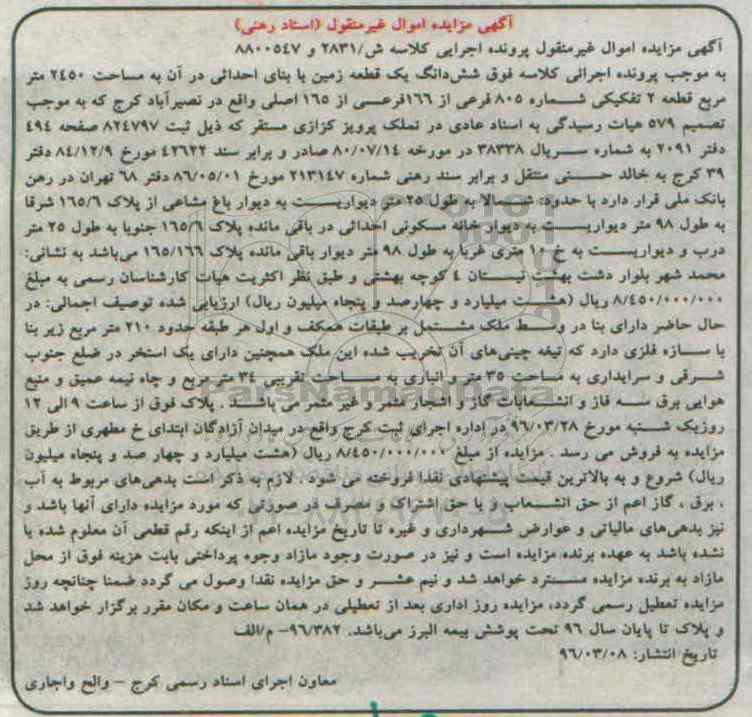 آگهی مزایده اموال غیرمنقول (اسناد رهنی)
آگهی مزایده اموال غیرمنقول پرونده اجرایی کلاسه ش/۲۸۳۱ و ۸۸۰۰۵۴۷
به موجب پرونده اجرائی کلاسه فوق شش‌دانگ یک قطعه زمین با بنای احداثی در آن به مساحت ۲۴۵۰ متر
مربع قطعه ۲ تفکیکی شماره ۸۰۵ فرعی از ۱۶۶فرعی از ۱۶۵ اصلی واقع در نصیرآباد کرج که به موجب
تصمیم ۵۷۹ هیات رسیدگی به اسناد عادی در تملک پرویز کزازی مستقر که ذیل ثبت ۸۲۴۷۹۷ صفحه ۴۹۴
دفتر ۲۰۹۱ به شماره سریال ۳۸۳۳۸ در مورخه ۸۰/۰۷/۱۴ صادر و برابر سند ۴۲۶۲۲ مورخ ۸۴/۱۲/۹ دفتر
۳۹ کرج به خالد حسنی منتقل و برابر سند رهنی شماره ۲۱۳۱۴۷ مورخ ۸۶/۰۵/۰۱ دفتر ۶۸ تهران در رهن
بانک ملی قرار دارد با حدود: شمالا به طول ۲۵ متر دیواریست به دیوار باغ مشاعی از پلاک ۱۶۵/۶ شرقا
به طول ۹۸ متر دیواریست به دیوار خانه مسکونی احداثی در باقی مانده پلاک ۱۶۵/۶ جنوبا به طول ۲۵ متر
درب و دیواریست به خ ۱۰ متری غربا به طول ۹۸ متر دیوار باقی مانده پلاک ۱۶۵/۱۶۶ می‌باشد به نشانی:
محمد شهر بلوار دشت بهشت نیستان ۴ کوچه بهشتی و طبق نظر اکثریت هیات کارشناسان رسمی به مبلغ
۸/۴۵۰/۰۰۰/۰۰۰ ریال (هشت میلیارد و چهارصد و پنجاه میلیون ریال) ارزیابی شده توصیف اجمالی: در
حال حاضر دارای بنا در وسط ملک مشتمل بر طبقات همکف و اول هر طبقه حدود ۲۱۰ متر مربع زیر بنا
با سازه فلزی دارد که تیغه چینی‌های آن تخریب شده این ملک همچنین دارای یک استخر در ضلع جنوب
شرقی و سرایداری به مساحت ۳۵ متر و انباری به مساحت تقریبی ۳۴ متر مربع و چاه نیمه عمیق و منبع
هوایی برق سه فاز و انشعابات گاز و اشجار مثمر و غیر مثمر می باشد . پلاک فوق از ساعت ۹ الی ۱۲
روزیک شنبه مورخ ۹۶/۰۳/۲۸ در اداره اجرای ثبت کرج واقع در میدان آزادگان ابتدای خ مطهری از طریق
مزایده به فروش می رسد . مزایده از مبلغ ۸/۴۵۰/۰۰۰/۰۰۰ ریال (هشت میلیارد و چهار صد و پنجاه میلیون
ریال) شروع و به بالاترین قیمت پیشنهادی نقدا فروخته می شود . لازم به ذکر است بدهی‌های مربوط به آب
، برق ، گاز اعم از حق انشعاب و یا حق اشتراک و مصرف در صورتی که مورد مزایده دارای آنها باشد و
نیز بدهی‌های مالیاتی و عوارض شهرداری و غیره تا تاریخ مزایده اعم از اینکه رقم قطعی آن معلوم شده یا
نشده باشد به عهده برنده مزایده است و نیز در صورت وجود مازاد وجوه پرداختی بابت هزینه فوق از محل
مازاد به برنده مزایده مسترد خواهد شد و نیم عشر و حق مزایده نقدا وصول می گردد ضمنا چنانچه روز
مزایده تعطیل رسمی گردد، مزایده روز اداری بعد از تعطیلی در همان ساعت و مکان مقرر برگزار خواهد شد
و پلاک تا پایان سال ۹۶ تحت پوشش بیمه البرز می‌باشد. ۹۶/۳۸۲- م/الف
تاریخ انتشار: ۹۶/۰۳/۰۸
معاون اجرای اسناد رسمی کرج – والح واجاری
ParsNamadData